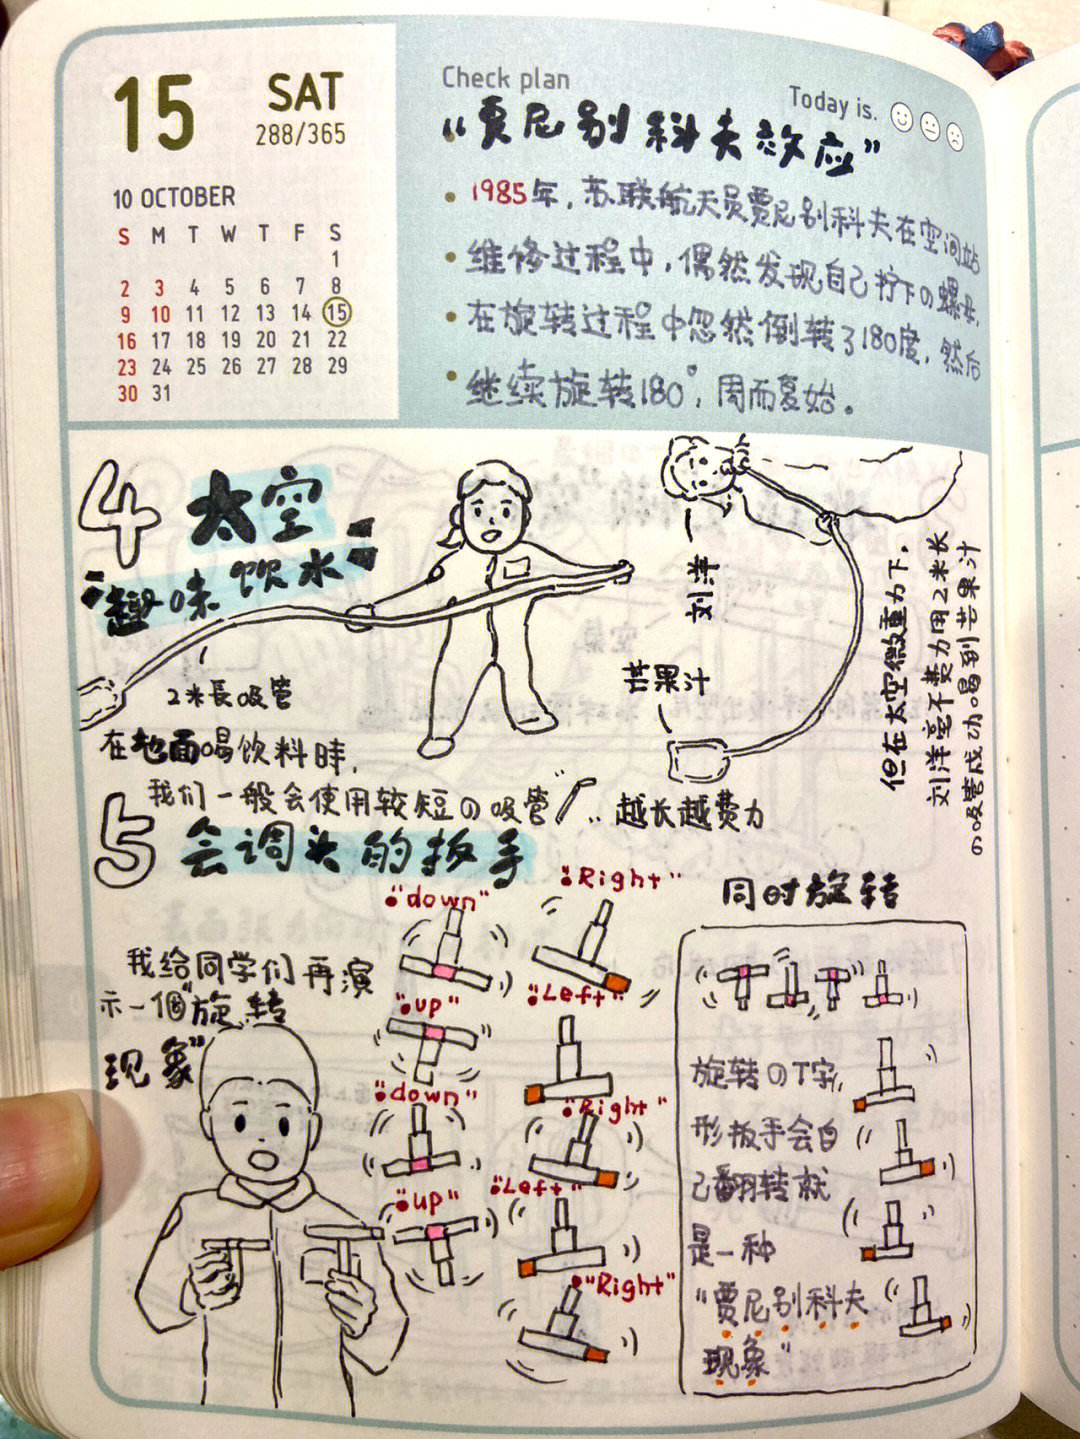 15 SAT
288/365
10 OCTOBER
S M T W T F S
1
2 3 4 5 6 7 8
9 10 11 12 13 14 15
16 17 18 19 20 21 22
23 24 25 26 27 28 29
30 31
Check plan
Today is.
“贾尼别科夫效应”
1985年，苏联航天员贾尼别科夫在空间站
维修过程中，偶然发现自己拧下の螺母，
在旋转过程中忽然倒转了180度，然后
继续旋转180°，周而复始。
4 太空
“趣味饮水”
2米長吸管
在地面喝饮料时，
我们一般会使用较短の吸管
越长越费力
刘洋
芒果汁
但在太空微重力下，
刘洋毫不费力用2米长
の吸管成功喝到芒果汁
5 会调头的扳手
我给同学们再演
示一个“旋转
现象”
“down”
“up”
“down”
“up”
“Right”
“Left”
“Right”
“Left”
“Right”
同时旋转
旋转のT字
形扳手会自
己翻转就
是一种
“贾尼别科夫
现象”